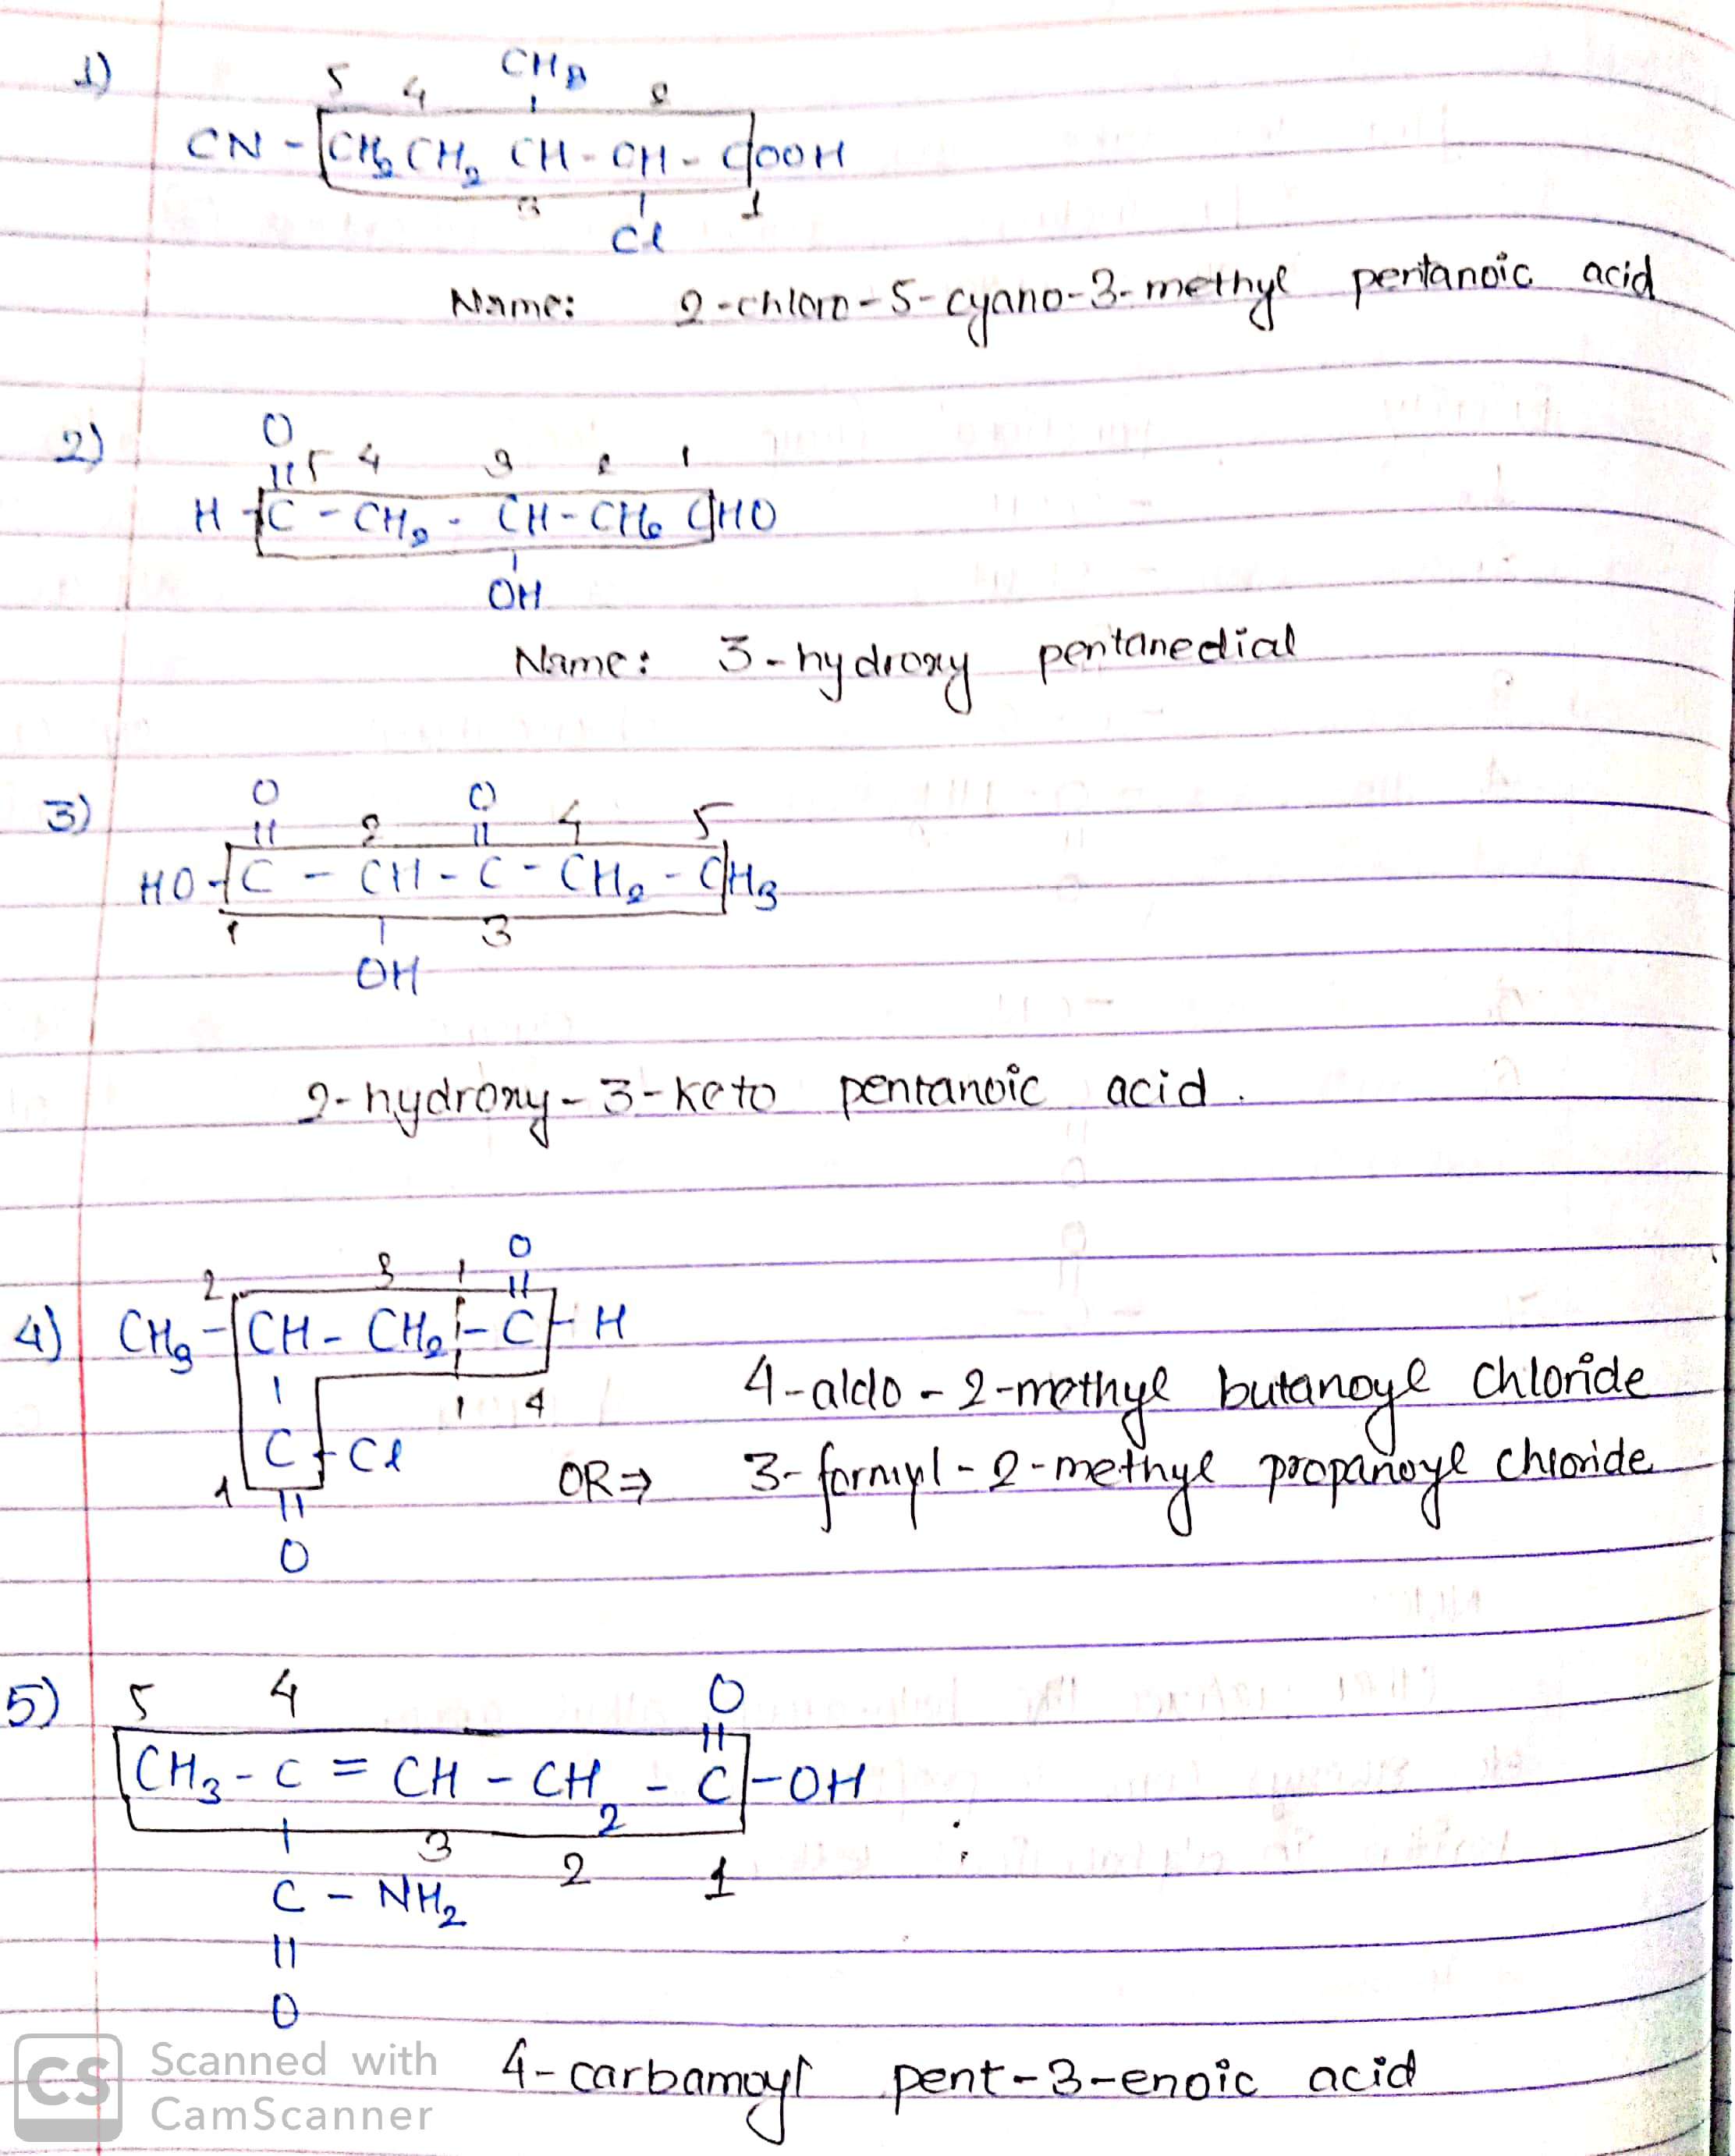 1)
CH3
5 4 2
CN - CH2 CH2 CH - CH - COOH
3 1
Cl
Name: 2-chloro-5-cyano-3-methyl pentanoic acid
2)
O
5 4 3 2 1
H - C - CH2 - CH - CH2 CHO
OH
Name: 3-hydroxy pentanedial
3)
O O
2 4 5
HO - C - CH - C - CH2 - CH3
1 3
OH
2-hydroxy-3-keto pentanoic acid.
O
2 3
4) CH3 - CH - CH2 - C - H
4
4-aldo-2-methyl butanoyl chloride
C - Cl
OR ⇒ 3-formyl-2-methyl propanoyl chloride
1
O
5) 5 4 O
CH3 - C = CH - CH2 - C - OH
3 2 1
C - NH2
O
4-carbamoyl pent-3-enoic acid
CS Scanned with
CamScanner